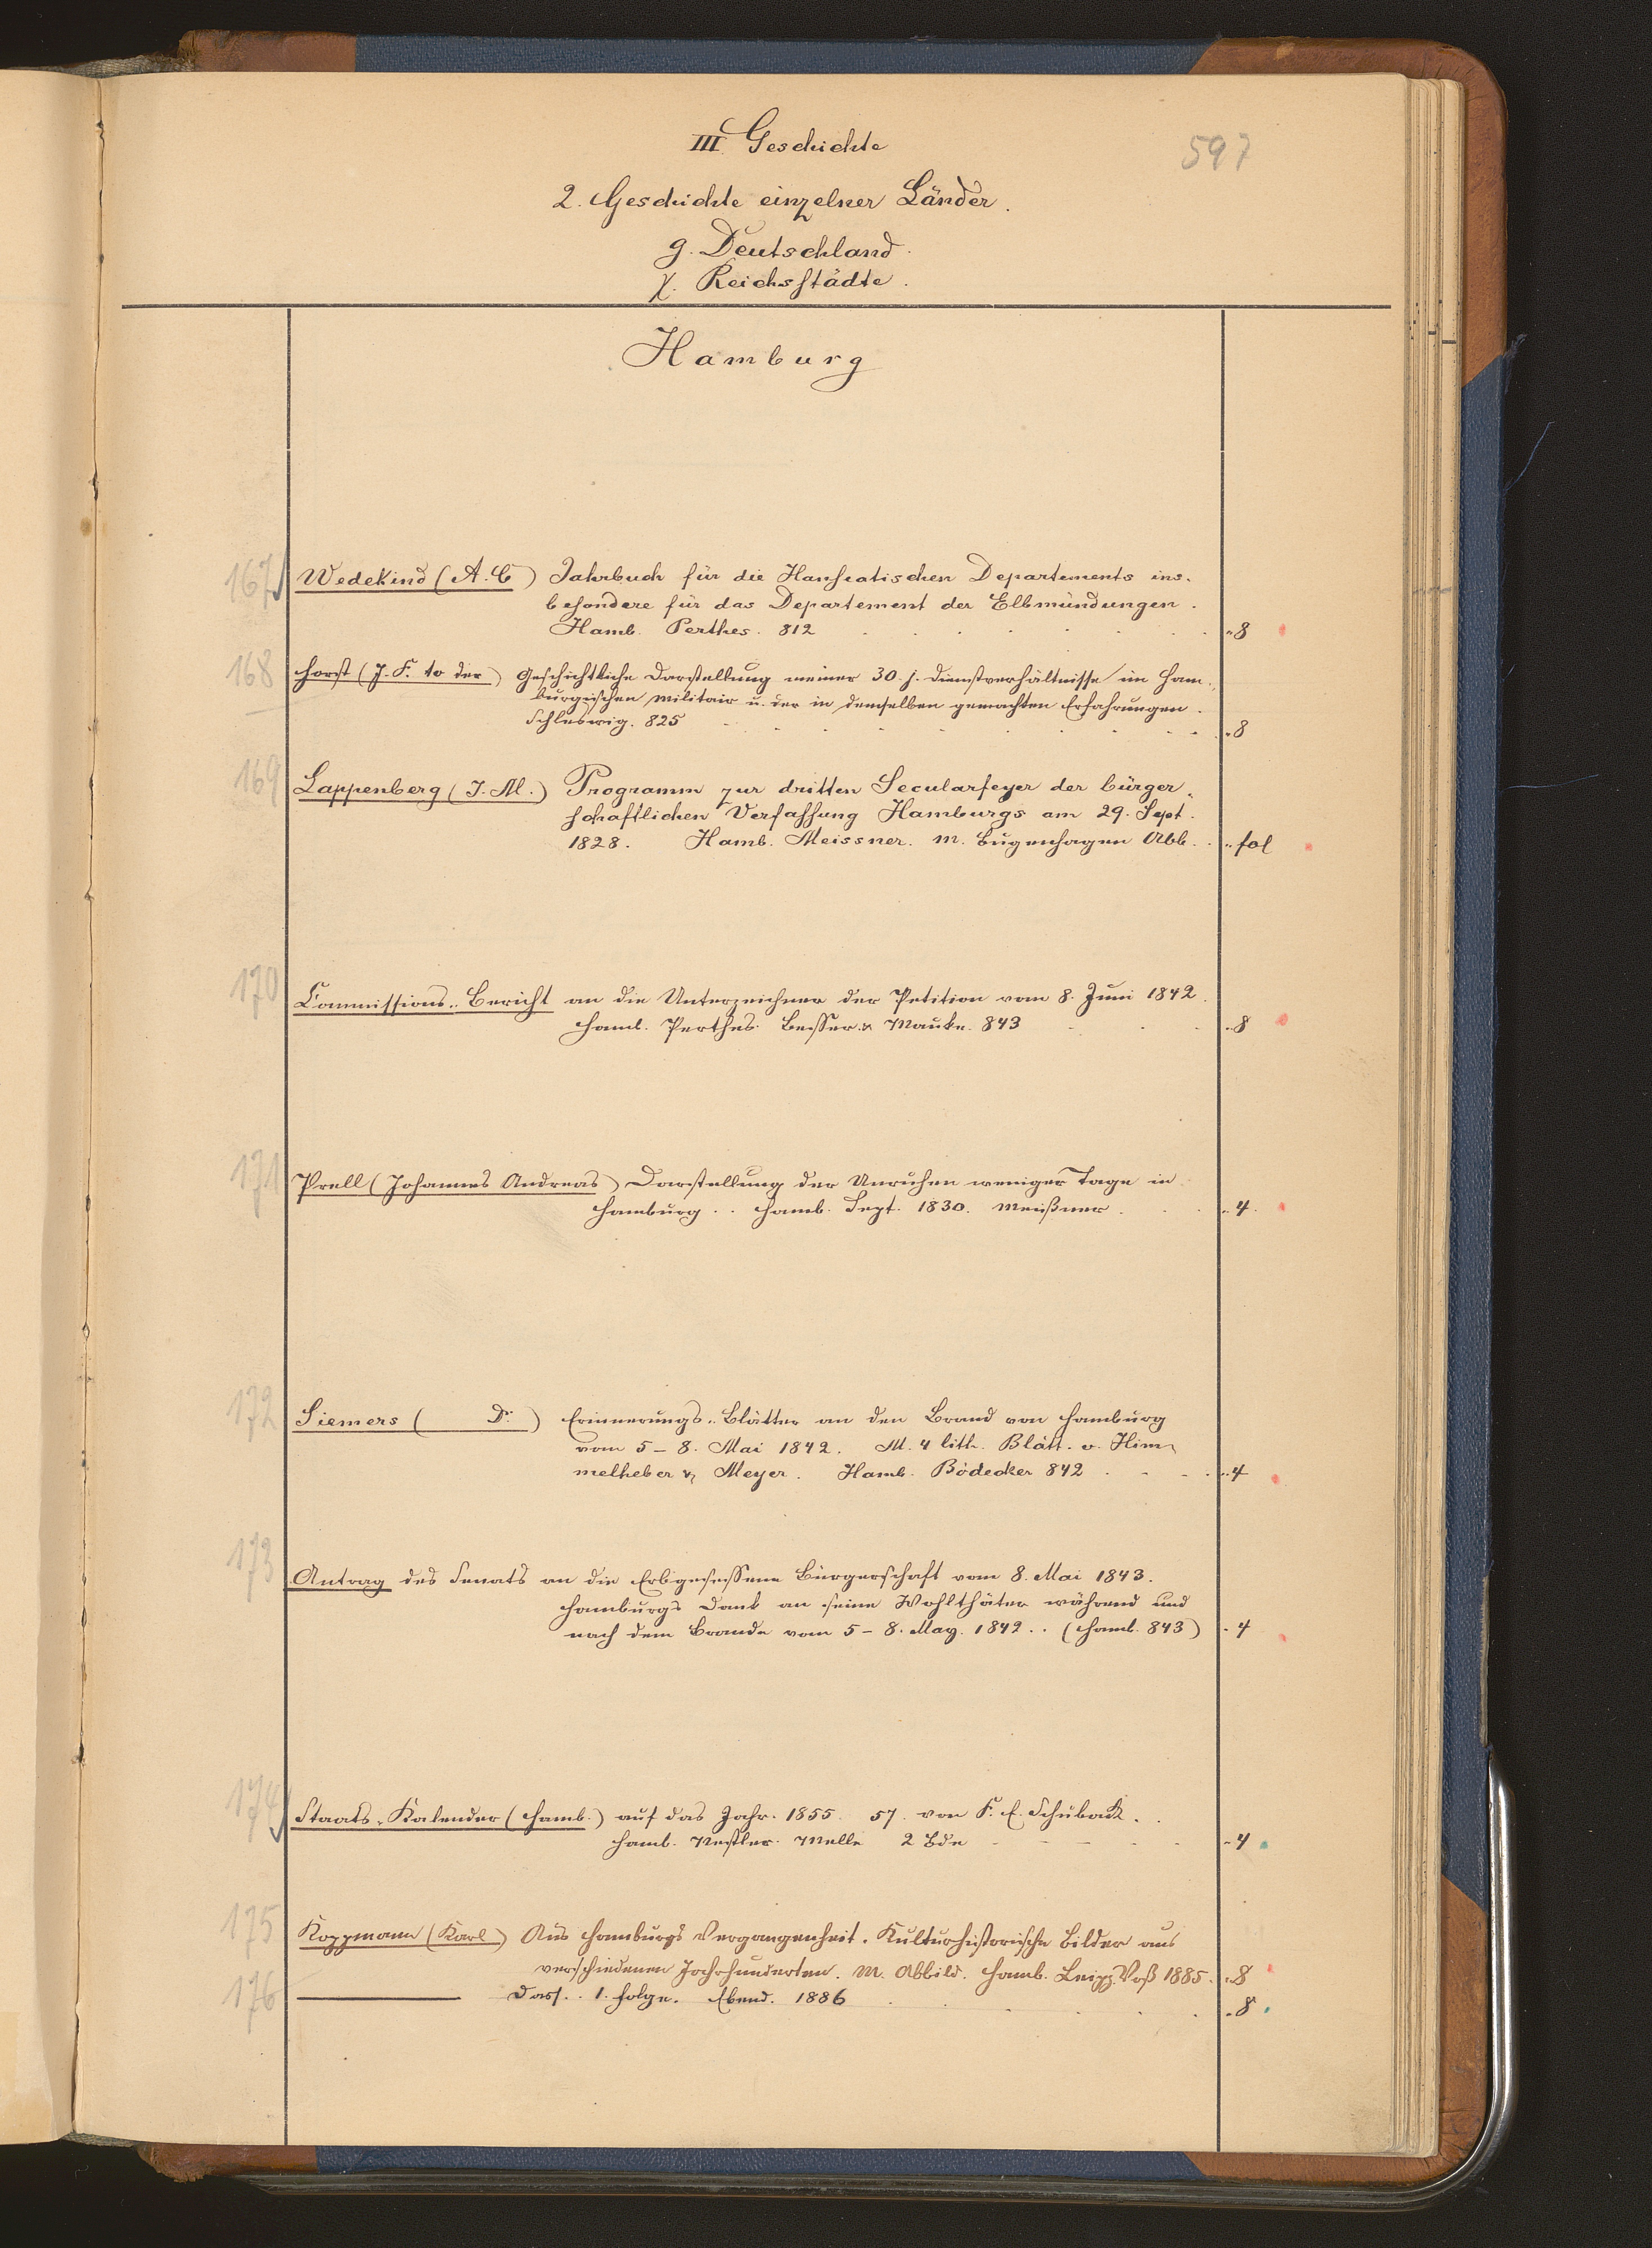 III Geschichte
597
2. Geschichte einzelner Länder.
g. Deutschland.
χ. Reichsstädte.
Hamburg
167 Wedekind (A. C) Jahrbuch für die Hanseatischen Departements ins-
besondere für das Departement der Elbmündungen.
Hamb. Perthes. 812 . . . . . . . . „ 8
168 Horst (J. F. to der) Geschichtliche Darstellung meiner 30. j. Dienstverhältnisse im Ham-
burgischen Militair u. der in demselben gemachten Erfahrungen.
Schleswig. 825 . . . . . . . . „ 8
169 Lappenberg (J. M.) Programm zur dritten Secularfeyer der bürger-
schaftlichen Verfassung Hamburgs am 29. Sept.
1828. Hamb. Meissner. M. Bugenhagen Abb. . „ fol
170 Commissions-Bericht an die Unterzeichner der Petition vom 8. Juni 1842.
Hamb. Perthes. Besser & Mauke. 843 . . . „ 8
171 Prell (Johannes Andreas) Darstellung der Unruhen weniger Tage in
Hamburg . . Hamb. Sept. 1830. Meißner . . „ 4.
172 Siemers ( Dr. ) Erinnerungs-Blätter an den Brand von Hamburg
vom 5 – 8. Mai 1842. M. 4 lith. Blätt. v. Him-
melheber & Meyer. Hamb. Bödecker 842 . . . . „ 4
173 Antrag des Senats an die Erbgesessene Bürgerschaft vom 8. Mai 1843.
Hamburgs Dank an seine Wohlthäter während und
nach dem Brande vom 5 – 8. May. 1842 . . (Hamb. 843) „ 4
174 Staats-Kalender (Hamb.) auf das Jahr. 1855. 57. von F. E. Schuback.
Hamb. Nestler. Melle 2 Bde . . . . „ 4
175 Koppmann (Karl) Aus Hamburgs Vergangenheit. Kulturhistorische Bilder aus
verschiedenen Jahrhunderten. M. Abbild. Hamb. Leipz. Voß 1885. „ 8
176 ——— Dass. . 1. Folge. Ebend. 1886 . . . . „ 8